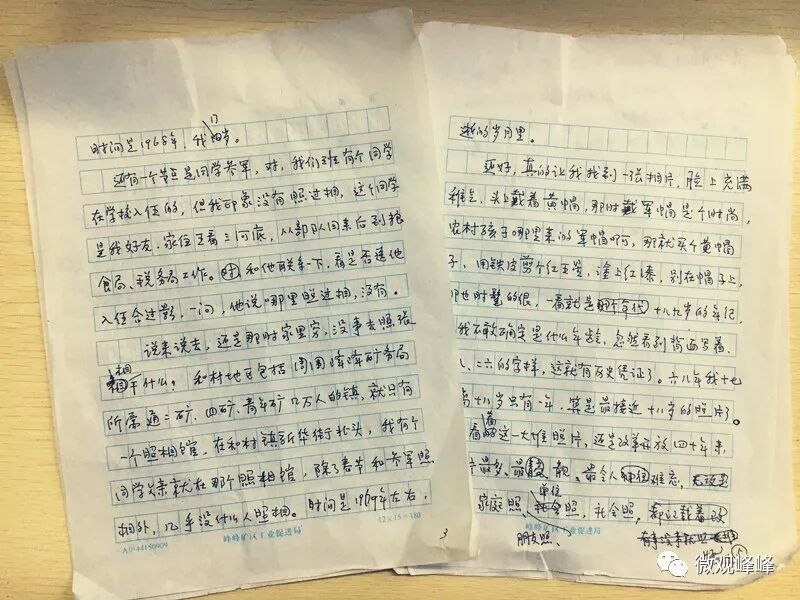 17
时间是1968年，我岁。
还有一个节点是同学参军，对，我们班有个同学
在学校入伍的，但我印象没有照过相，这个同学
是我好友，家住王看三河底，从部队回来后到粮
食局、税务局工作。和他联系一下，看是否送他
入伍合过影，一问，他说哪里照过相，没有。
说来说去，还是那时家里穷，没事去照张
相干什么。和村地区包括周围峰峰矿务局
所属通二矿、四矿、青年矿几万人的镇，就只有
一个照相馆，在和村镇新华街北头，我有个
同学父亲就在那个照相馆，除了春节和参军照
相外，几乎没什么人照相。时间是1969年左右，
峰峰矿区工业促进局
12×15=180
3
逝的岁月里。
还好，真的让我找到一张相片，脸上充满
稚气，头上戴着黄帽，那时戴军帽是个时尚，
农村孩子哪里来的军帽啊，那就买个黄帽
子，用铁皮剪个红五星，涂上红漆，别在帽子上，
那也时髦的很，一看就是十八九岁的年纪，
我不敢确定是什么年龄，忽然看到背面写着
八、二六的字样，这就有历史凭证了。六八年我十七
离十八岁只有一年，算是最接近十八岁的照片了。
看着这一大堆照片，还是改革开放四十年来，
最多，最靓，最令人难忘，
家庭照、单位照，社会照，都记载着改
朋友照、
峰峰矿区工业促进局
微观峰峰